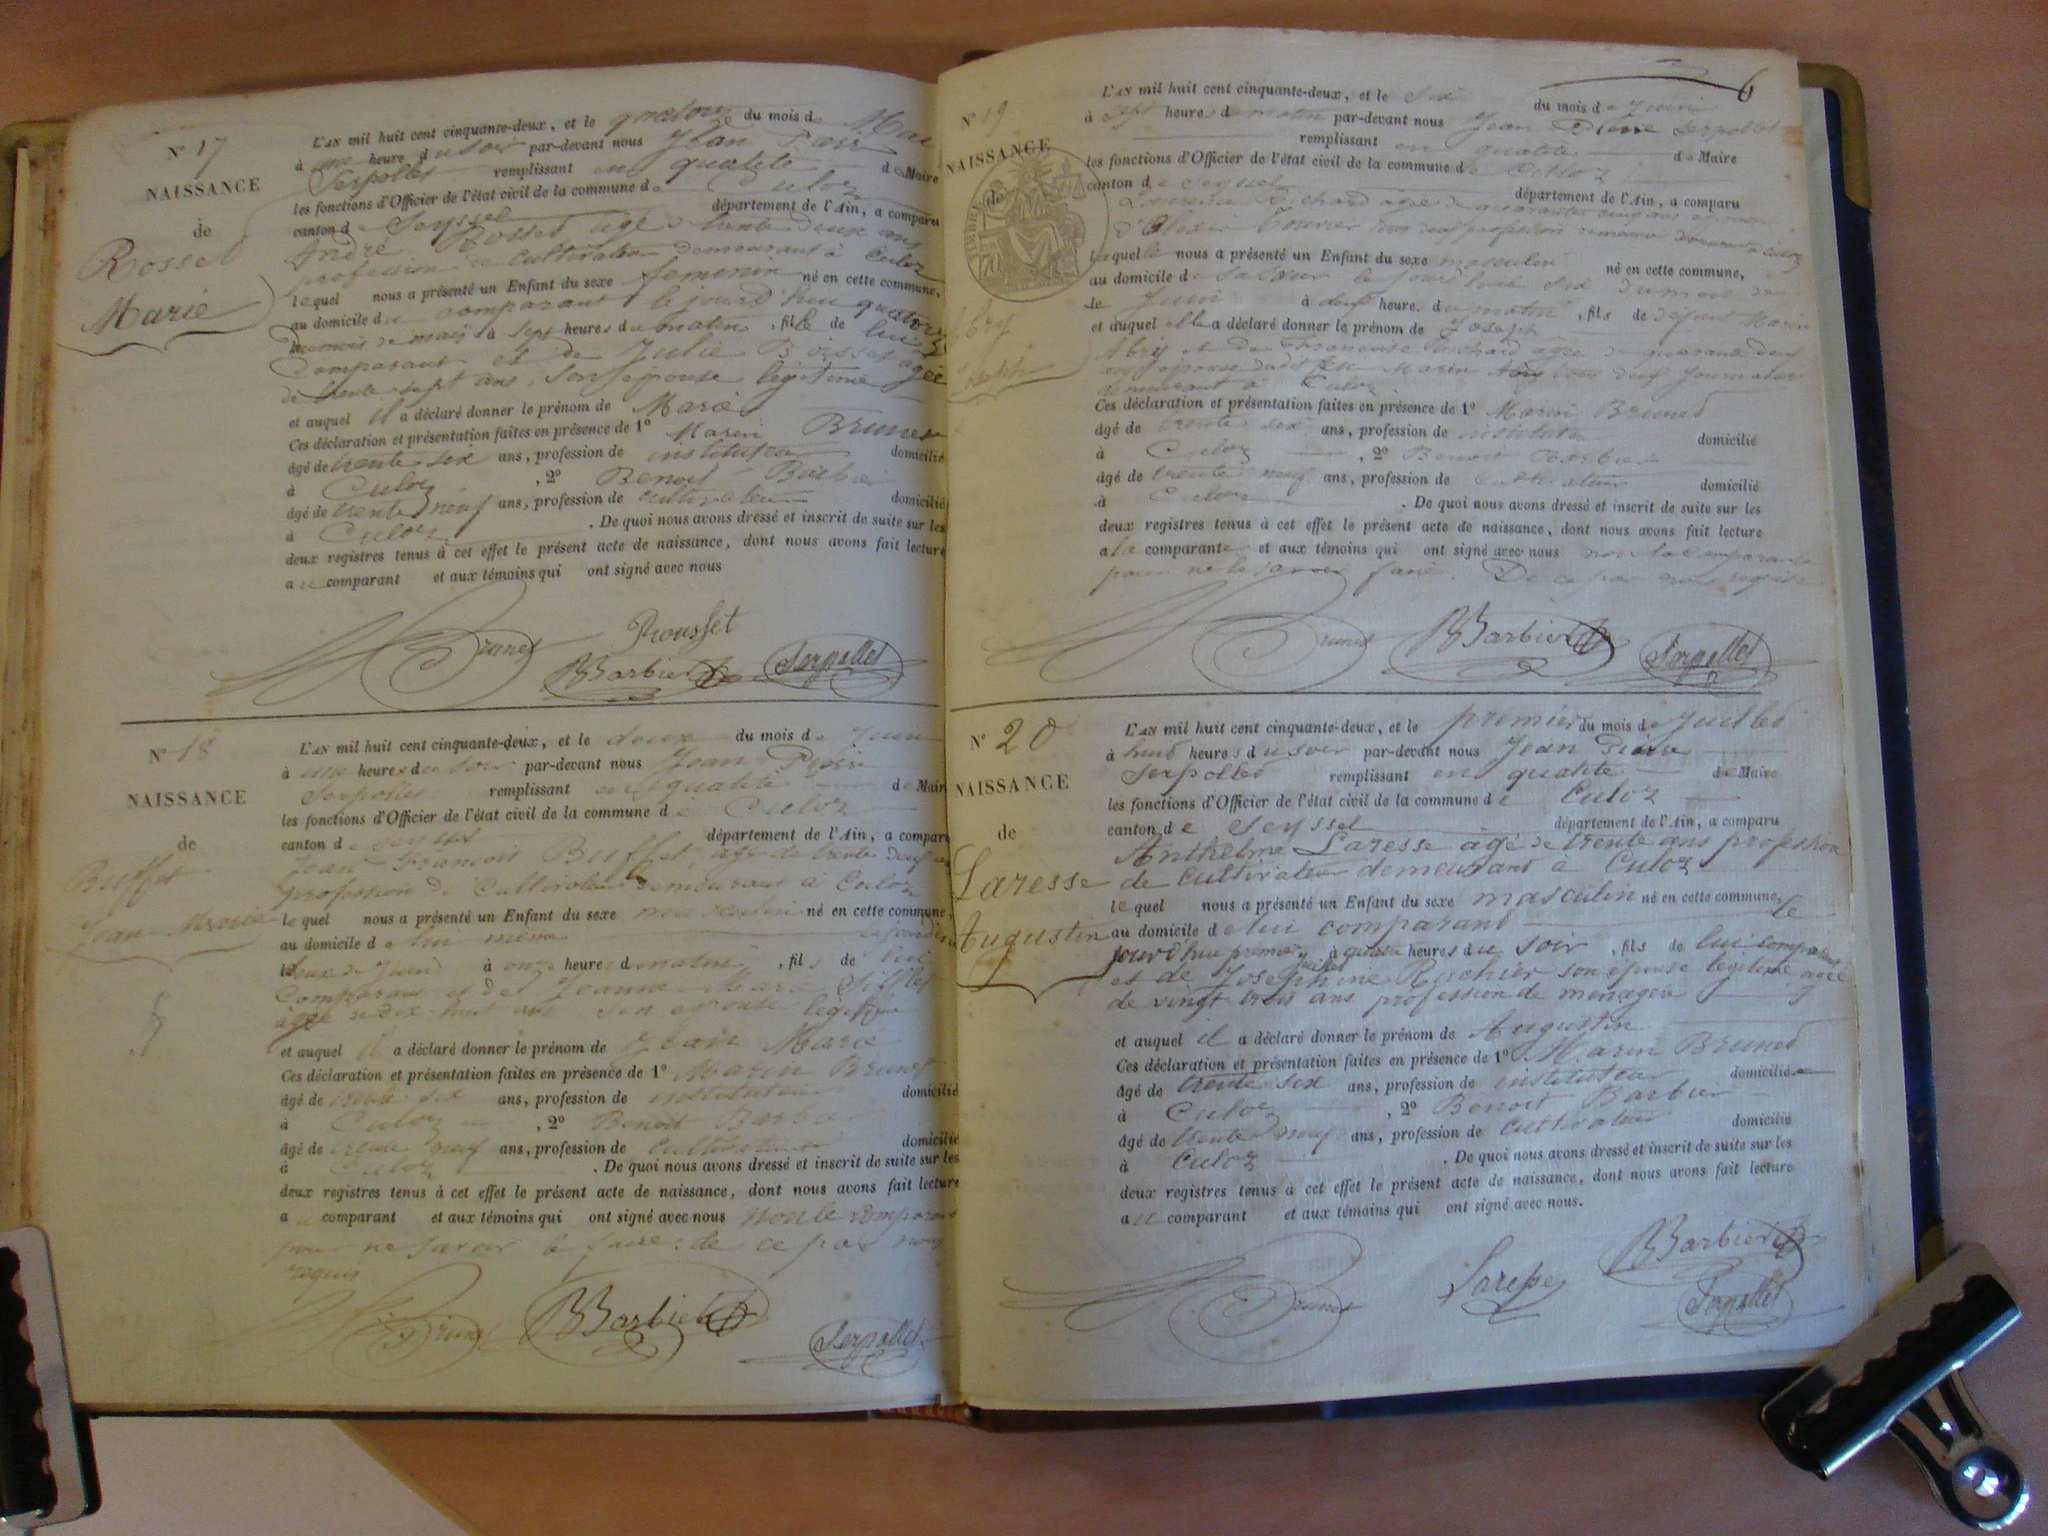 N° 17
NAISSANCE
de
Rosset
Marie
L'AN mil huit cent cinquante-deux, et le quatorze du mois de Mai
à une heure du soir par-devant nous Jean Pierre
Serpollet remplissant en qualité de Maire
les fonctions d'Officier de l'état civil de la commune de Culoz
canton de Seyssel département de l'Ain, a comparu
André Rosset âgé de trente deux ans
profession de Cultivateur demeurant à Culoz
lequel nous a présenté un Enfant du sexe féminin né en cette commune,
au domicile du comparant le jourd'hui quatorze
du mois de mai à sept heures du matin, fille de lui
Comparant et de Julie Boisset agée
de trente sept ans, son épouse légitime
et auquel il a déclaré donner le prénom de Marie
Ces déclaration et présentation faites en présence de 1° Marin Brunet
âgé de trente six ans, profession de instituteur domicilié
à Culoz, 2° Benoit Barbier
âgé de trente neuf ans, profession de cultivateur domicilié
à Culoz. De quoi nous avons dressé et inscrit de suite sur les
deux registres tenus à cet effet le présent acte de naissance, dont nous avons fait lecture
au comparant et aux témoins qui ont signé avec nous
Brunet Rousset
BBarbier Serpollet
N° 18
NAISSANCE
de
Buffet
Jean Marie
L'AN mil huit cent cinquante-deux, et le deux du mois de Juin
à une heure du soir par-devant nous Jean Pierre
Serpollet remplissant en qualité de Maire
les fonctions d'Officier de l'état civil de la commune de Culoz
canton de Seyssel département de l'Ain, a comparu
Jean François Buffet, âgé de trente deux ans
profession de Cultivateur demeurant à Culoz
lequel nous a présenté un Enfant du sexe masculin né en cette commune,
au domicile de lui même
deux de Juin à onze heures du matin, fils de lui
Comparant et de Jeanne Marie
âgée de dix huit ans son épouse légitime
et auquel il a déclaré donner le prénom de Jean Marie
Ces déclaration et présentation faites en présence de 1° Marin Brunet
âgé de trente six ans, profession de instituteur domicilié
à Culoz, 2° Benoit Barbier
âgé de trente neuf ans, profession de Cultivateur domicilié
à Culoz. De quoi nous avons dressé et inscrit de suite sur les
deux registres tenus à cet effet le présent acte de naissance, dont nous avons fait lecture
au comparant et aux témoins qui ont signé avec nous non le comparant
pour ne savoir le faire de ce par nous
requis
Brunet BBarbier Serpollet
6
N° 19
NAISSANCE
de
Abry
Joseph
TIMBRE
L'AN mil huit cent cinquante-deux, et le six du mois de Juin
à sept heures du matin par-devant nous Jean Pierre Serpollet
remplissant en qualité de Maire
les fonctions d'Officier de l'état civil de la commune de Culoz
canton de Seyssel département de l'Ain, a comparu
Richard agée de quarante cinq ans épouse
profession demeurant à Culoz
laquelle nous a présenté un Enfant du sexe masculin né en cette commune,
au domicile de sa soeur le jourd'hui six du mois de
Juin à heure du matin, fils de défunt Marin
et auquel elle a déclaré donner le prénom de Joseph
Abry et de Françoise Richard agée de quarante deux
ans épouse dudit feu Marin Abry
demeurant à Culoz
Ces déclaration et présentation faites en présence de 1° Marin Brunet
âgé de trente six ans, profession de instituteur domicilié
à Culoz, 2° Benoit Barbier
âgé de trente neuf ans, profession de cultivateur domicilié
à Culoz. De quoi nous avons dressé et inscrit de suite sur les
deux registres tenus à cet effet le présent acte de naissance, dont nous avons fait lecture
a la comparante et aux témoins qui ont signé avec nous non la comparante
pour ne le savoir faire. De ce par nous requise
Brunet BBarbier Serpollet
N° 20
NAISSANCE
de
Laresse
Augustin
L'AN mil huit cent cinquante-deux, et le premier du mois de Juillet
à huit heures du soir par-devant nous Jean Pierre
Serpollet remplissant en qualité de Maire
les fonctions d'Officier de l'état civil de la commune de Culoz
canton de Seyssel département de l'Ain, a comparu
Anthelme Laresse âgé de trente ans profession
de Cultivateur demeurant à Culoz
lequel nous a présenté un Enfant du sexe masculin né en cette commune,
au domicile de lui comparant le
jourd'hui premier juillet à quatre heures du soir, fils de lui comparant
et de Joséphine Rochier son épouse légitime agée
de vingt trois ans profession de ménagère
et auquel il a déclaré donner le prénom de Augustin
Ces déclaration et présentation faites en présence de 1° Marin Brunet
âgé de trente six ans, profession de instituteur domicilié
à Culoz, 2° Benoit Barbier
âgé de trente neuf ans, profession de cultivateur domicilié
à Culoz. De quoi nous avons dressé et inscrit de suite sur les
deux registres tenus à cet effet le présent acte de naissance, dont nous avons fait lecture
au comparant et aux témoins qui ont signé avec nous.
BBarbier
Brunet Laresse Serpollet